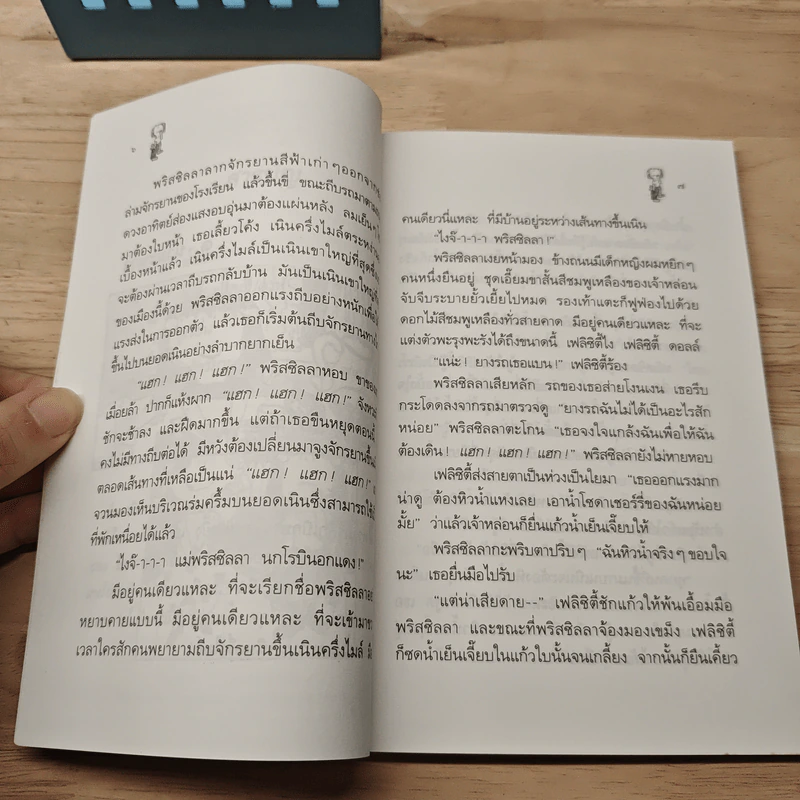 ๖
พริสซิลลาลากจักรยานสีฟ้าเก่าๆออกจาก
ล่ามจักรยานของโรงเรียน แล้วขึ้นขี่ ขณะถีบรถมาตาม
ดวงอาทิตย์ส่องแสงอบอุ่นมาต้องแผ่นหลัง ลมเย็นๆ
มาต้องใบหน้า เธอเลี้ยวโค้ง เนินครึ่งไมล์ตระหง่าน
เบื้องหน้าแล้ว เนินครึ่งไมล์เป็นเนินเขาใหญ่ที่สุดซึ่ง
จะต้องผ่านเวลาถีบรถกลับบ้าน มันเป็นเนินเขาใหญ่ที่
ของเมืองนี้ด้วย พริสซิลลาออกแรงถีบอย่างหนักเพื่อ
แรงส่งในการออกตัว แล้วเธอก็เริ่มต้นถีบจักรยานทาง
ขึ้นไปบนยอดเนินอย่างลำบากยากเย็น
"แฮก! แฮก! แฮก!" พริสซิลลาหอบ ขาของ
เมื่อยล้า ปากก็แห้งผาก "แฮก! แฮก! แฮก!" จังหวะ
ชักจะช้าลง และฝืดมากขึ้น แต่ถ้าเธอขืนหยุดตอนนี้
คงไม่มีทางถีบต่อได้ มีหวังต้องเปลี่ยนมาจูงจักรยานขึ้น
ตลอดเส้นทางที่เหลือเป็นแน่ "แฮก! แฮก! แฮก!"
จวนมองเห็นบริเวณร่มครึ้มบนยอดเนินซึ่งสามารถใช้
ที่พักเหนื่อยได้แล้ว
"ไงจ๊ะ-า-า-า แม่พริสซิลลา นกโรบินอกแดง!"
มีอยู่คนเดียวแหละ ที่จะเรียกชื่อพริสซิลลา
หยาบคายแบบนี้ มีอยู่คนเดียวแหละ ที่จะเข้ามา
เวลาใครสักคนพยายามถีบจักรยานขึ้นเนินครึ่งไมล์
๗
คนเดียวนี่แหละ ที่มีบ้านอยู่ระหว่างเส้นทางขึ้นเนิน
"ไงจ๊ะ-า-า-า พริสซิลลา!"
พริสซิลลาเงยหน้ามอง ข้างถนนมีเด็กหญิงผมหยิกๆ
คนหนึ่งยืนอยู่ ชุดเอี๊ยมขาสั้นสีชมพูเหลืองของเจ้าหล่อน
จับจีบระบายยั้วเยี้ยไปหมด รองเท้าแตะก็ฟูฟ่องไปด้วย
ดอกไม้สีชมพูเหลืองทั่วสายคาด มีอยู่คนเดียวแหละ ที่จะ
แต่งตัวพะรุงพะรังได้ถึงขนาดนี้ เฟลิซิตี้ไง เฟลิซิตี้ ดอลล์
"แน่ะ! ยางรถเธอแบน!" เฟลิซิตี้ร้อง
พริสซิลลาเสียหลัก รถของเธอส่ายโงนเงน เธอรีบ
กระโดดลงจากรถมาตรวจดู "ยางรถฉันไม่ได้เป็นอะไรสัก
หน่อย" พริสซิลลาตะโกน "เธอจงใจแกล้งฉันเพื่อให้ฉัน
ต้องเดิน! แฮก! แฮก! แฮก!" พริสซิลลายังไม่หายหอบ
เฟลิซิตี้ส่งสายตาเป็นห่วงเป็นใยมา "เธอออกแรงมาก
น่าดู ต้องหิวน้ำแหงเลย เอาน้ำโซดาเชอร์รี่ของฉันหน่อย
มั้ย" ว่าแล้วเจ้าหล่อนก็ยื่นแก้วน้ำเย็นเจี๊ยบให้
พริสซิลลากะพริบตาปริบๆ "ฉันหิวน้ำจริงๆ ขอบใจ
นะ" เธอยื่นมือไปรับ
"แต่น่าเสียดาย--" เฟลิซิตี้ชักแก้วให้พ้นเอื้อมมือ
พริสซิลลา และขณะที่พริสซิลลาจ้องมองเขม็ง เฟลิซิตี้
ก็ซดน้ำเย็นเจี๊ยบในแก้วใบนั้นจนเกลี้ยง จากนั้นก็ยืนเคี้ยว